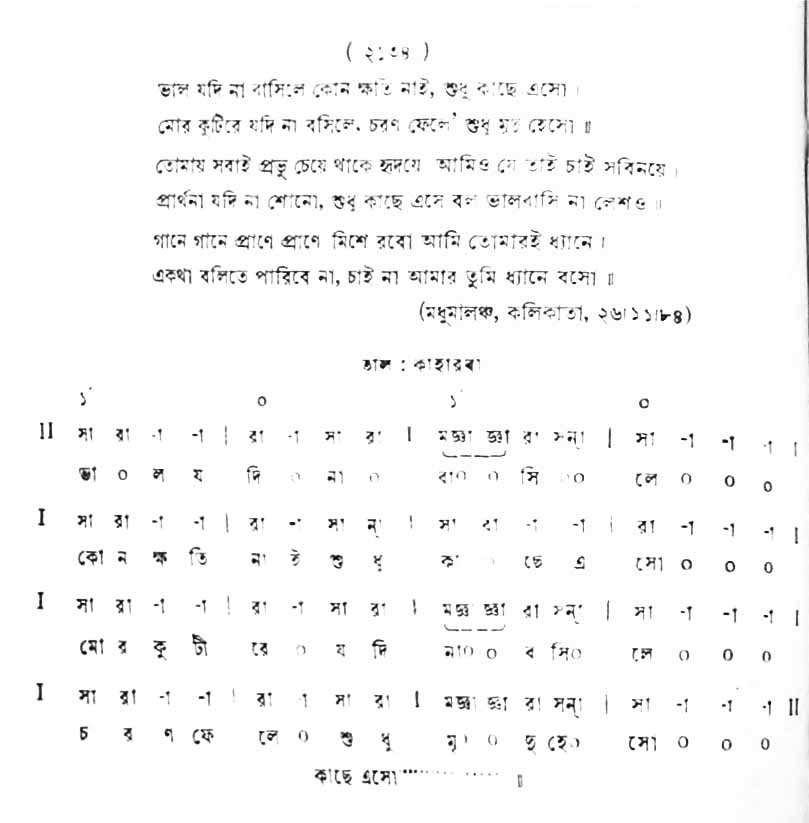 ( ২১৩৪ )
ভাল যদি না বাসিলে কোন ক্ষতি নাই, শুধু কাছে এসো ।
মোর কুটিরে যদি না বসিলে, চরণ ফেলে' শুধু মৃদু হেসো ॥
তোমায় সবাই প্রভু চেয়ে থাকে হৃদয়ে আমিও যে তাই চাই সবিনয়ে ।
প্রার্থনা যদি না শোনো, শুধু কাছে এসে বল ভালবাসি না লেশও ॥
গানে গানে প্রাণে প্রাণে মিশে রবো আমি তোমারই ধ্যানে ।
একথা বলিতে পারিবে না, চাই না আমার তুমি ধ্যানে বসো ॥
(মধুমালঞ্চ, কলিকাতা, ২৬।১১।৮৪)
তাল : কাহারবা
১ ০ ১ ০
II সা রা -া -া | রা -া সা রা I মজ্ঞা জ্ঞা রা সন্া | সা -া -া -া I
ভা ০ ল য দি ০ না ০ বা০ ০ সি ০০ লে ০ ০ ০
I সা রা -া -া | রা -া সা ন্া I সা রা -া -া | রা -া -া -া I
কো ন ক্ষ তি না ই শু ধু কা ০ ছে এ সো ০ ০ ০
I সা রা -া -া | রা -া সা রা I মজ্ঞা জ্ঞা রা সন্া | সা -া -া -া I
মো র কু টী রে ০ য দি না০ ০ ব সি০ লে ০ ০ ০
I সা রা -া -া | রা -া সা রা I মজ্ঞা জ্ঞা রা সন্া | সা -া -া -া II
চ র ণ ফে লে ০ শু ধু মৃ০ ০ দু হে০ সো ০ ০ ০
কাছে এসো ............ ॥